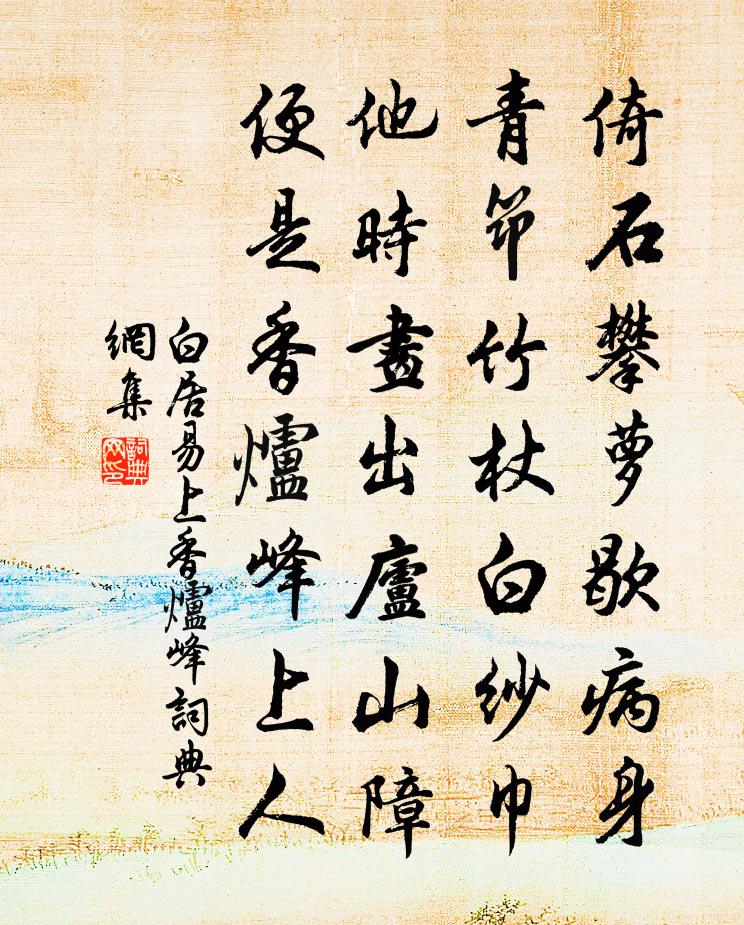 倚石攀蘿歇病身
青笻竹杖白紗巾
他時畫出廬山障
便是香爐峰上人
白居易上香爐峰詞典
網集
詞典
网印